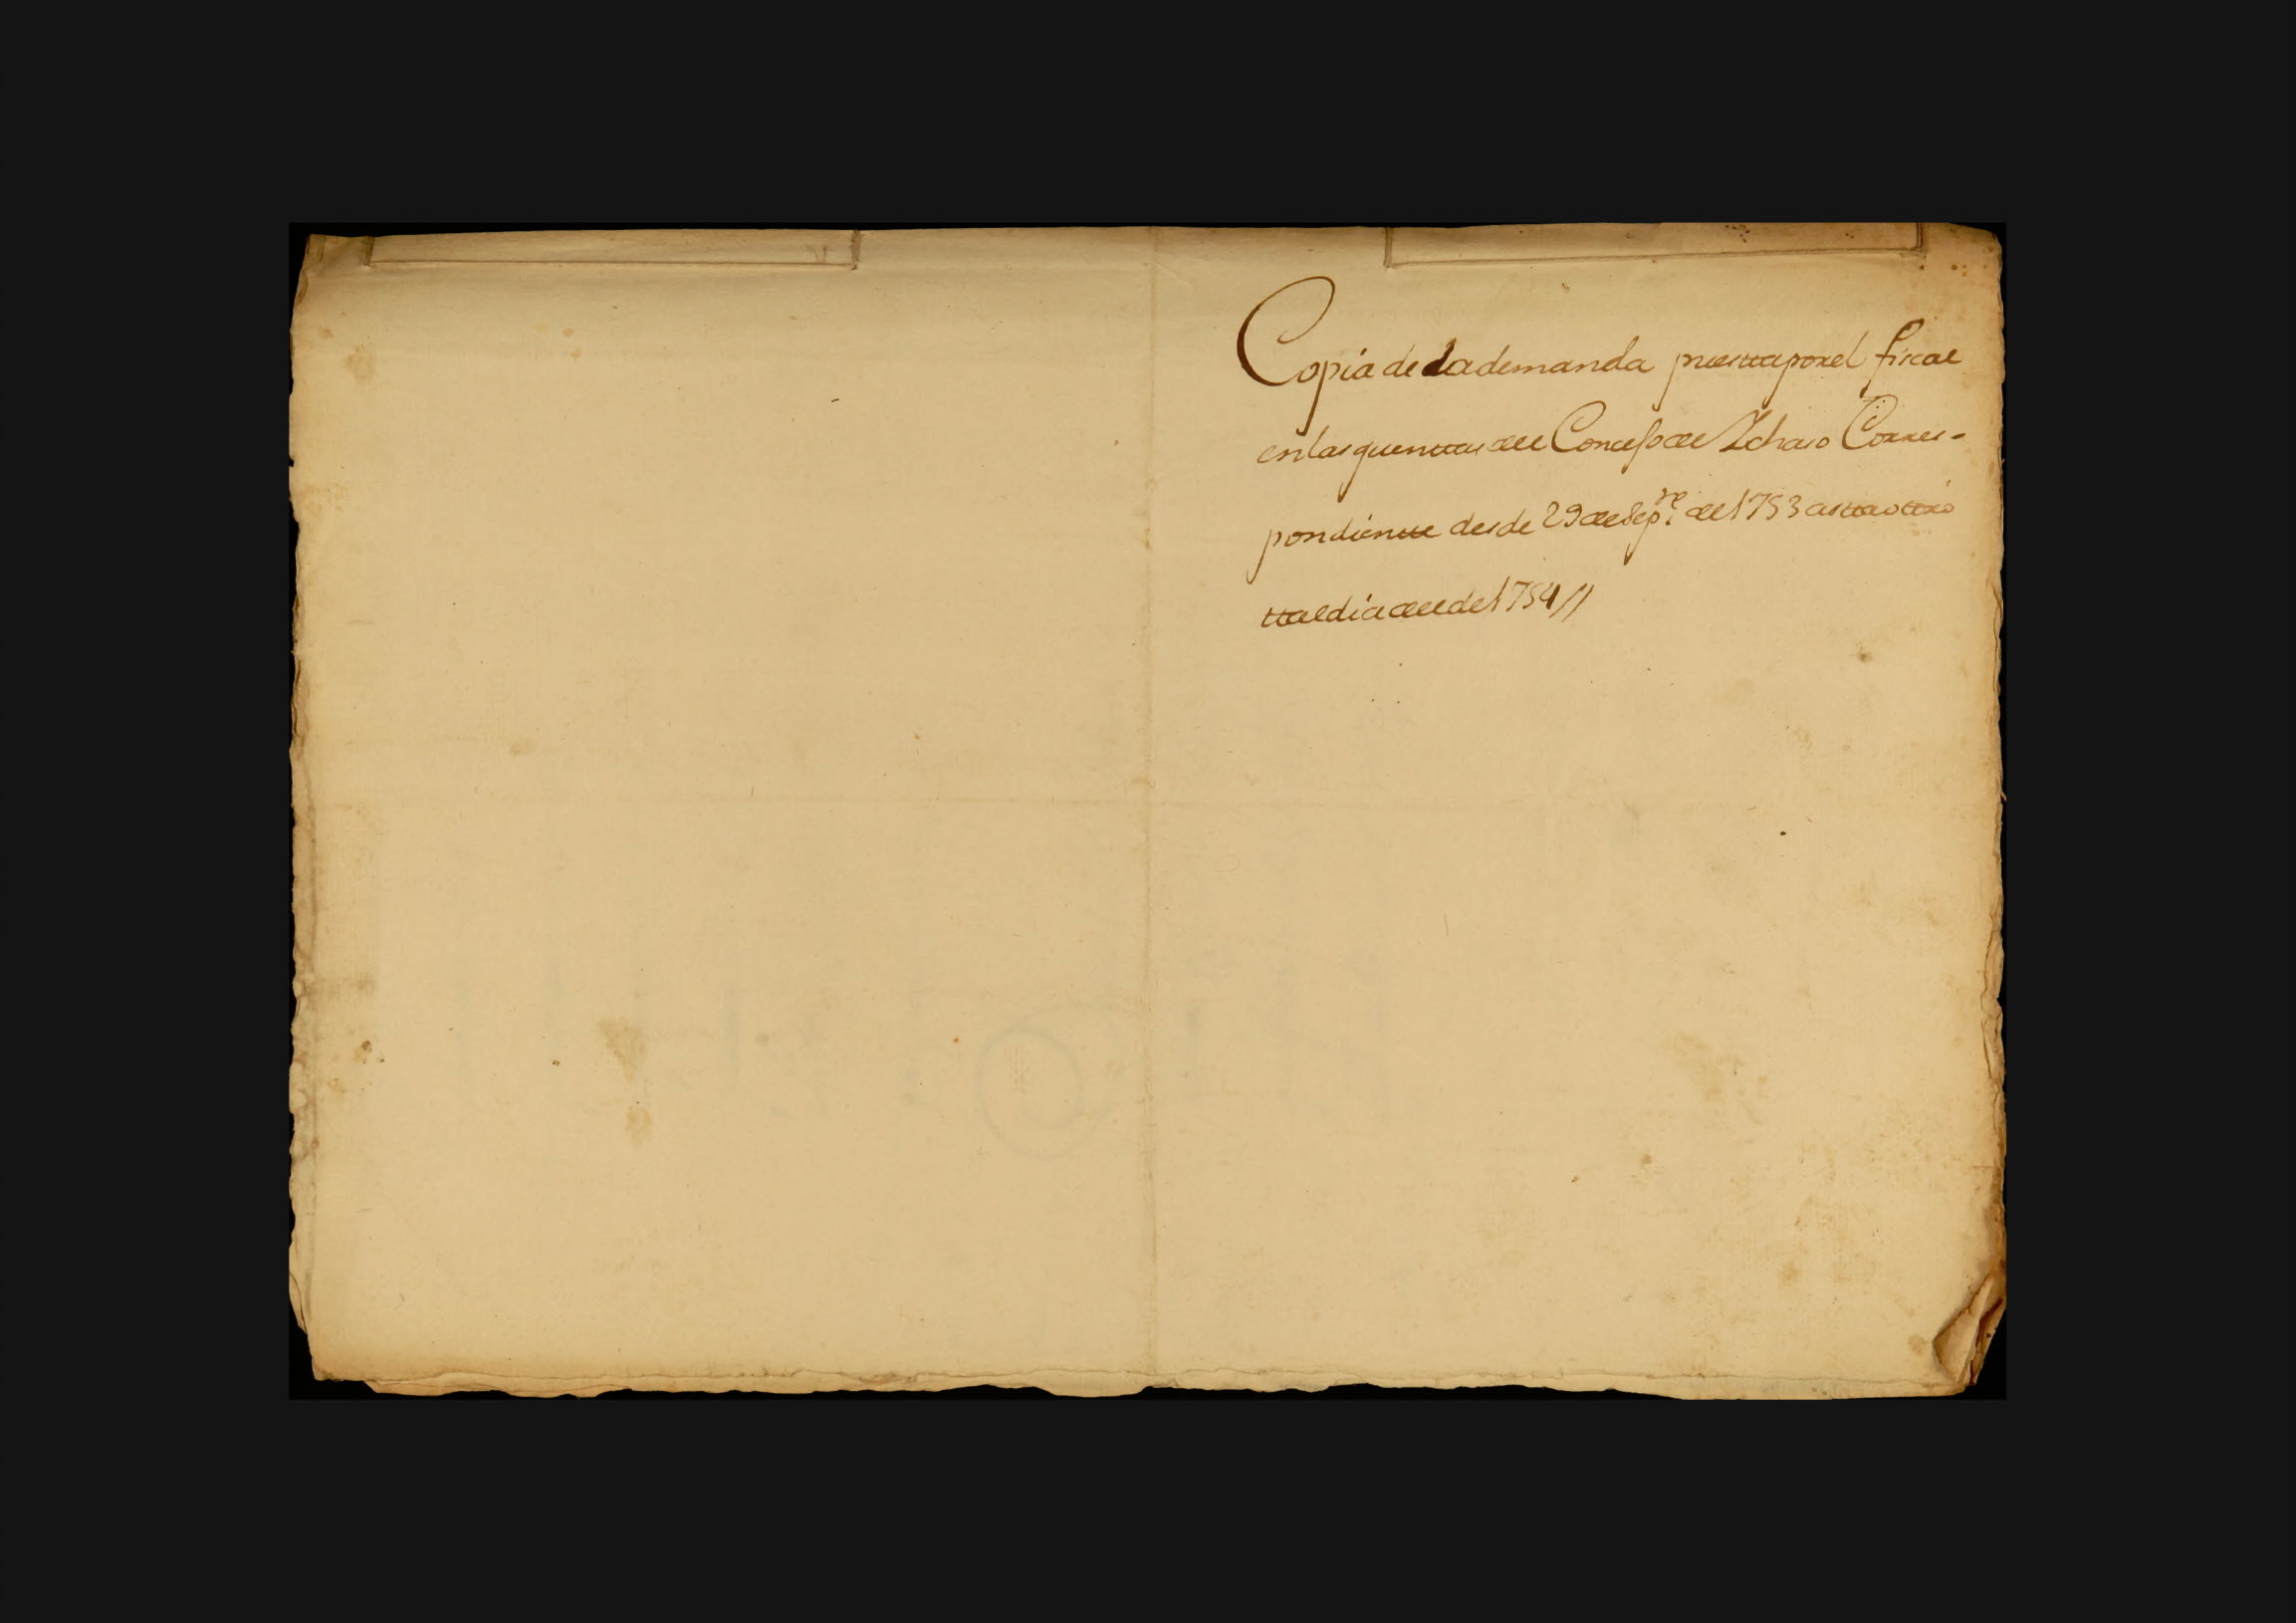 Copia de la demanda puestta por el fiscal
en las quenttas del Concejo de Ichaso Corres-
pondientte desde 29 de Sepre de 1753 astta ottro
ttal dia del de 1754 //